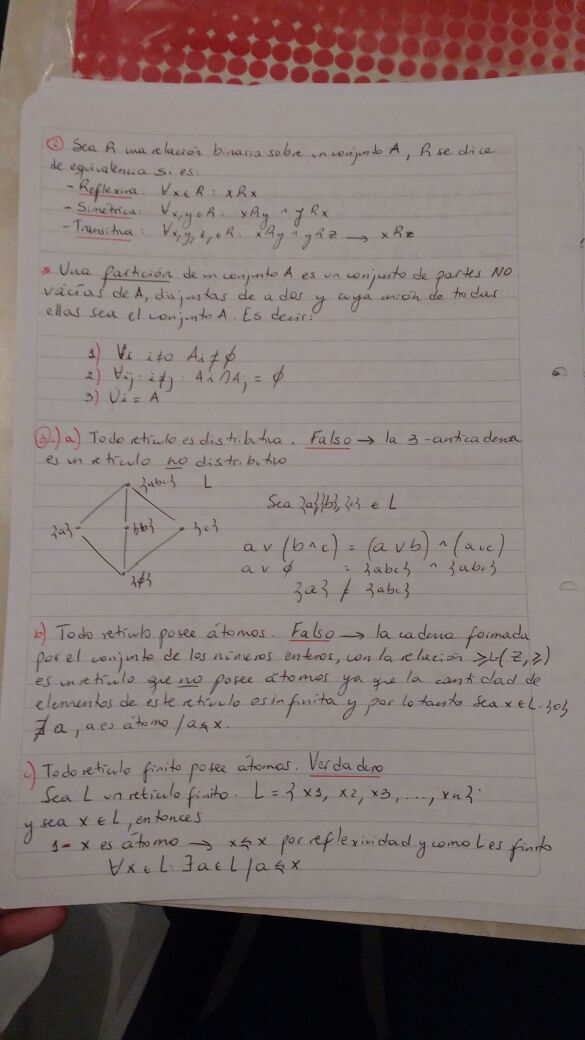 ② Sea R una relación binaria sobre un conjunto A, R se dice
de equivalencia si es:
- Reflexiva: ∀x∈R: xRx
- Simétrica: ∀x,y∈R: xRy ^ yRx
- Transitiva: ∀x,y,z,∈R: xRy ^ yRz → xRz
* Una partición de un conjunto A es un conjunto de partes NO
vacías de A, disjuntas de a dos y cuya unión de todas
ellas sea el conjunto A. Es decir:
1) ∀i i≠0 Ai ≠ ∅
2) ∀ij: i≠j: Ai ∩ Aj = ∅
3) Ui = A
③.) a) Todo retículo es distributiva. Falso → la 3-anticadena
es un retículo no distributivo
{abc} L
Sea {a}{b},{c} ∈ L
{a} {b} {c}
a v (b ^ c) = (a v b) ^ (a v c)
a v ∅ = {abc} ^ {abc}
{∅}
{a} ≠ {abc}
b) Todo retículo posee átomos. Falso → la cadena formada
por el conjunto de los números enteros, con la relación ≥ (Z,≥)
es un retículo que no posee átomos ya que la cantidad de
elementos de este retículo es infinita y por lo tanto sea x∈L-{0}
∄ a, a es átomo / a ≤ x.
c) Todo retículo finito posee átomos. Verdadero
Sea L un retículo finito. L = { x1, x2, x3, ..., xn}
y sea x ∈ L, entonces
1- x es átomo → x ≤ x por reflexividad y como L es finito
∀x ∈ L: ∃ a ∈ L / a ≤ x